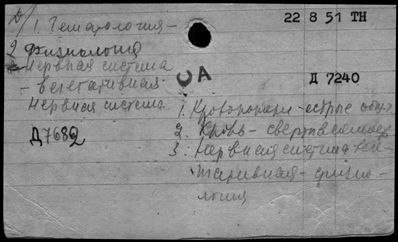 1. Гематология -
22 8 51 ТН
2 Физиология
- Нервная система
- вегетативная
Нервная система
Д 7240
Д7682
1. Кровопотери - острые
2. Кровь - свертываемость
3. Нервная система вегетативная - физиология